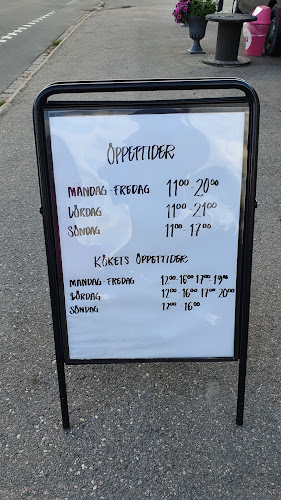 ÖPPETTIDER
MANDAG-FREDAG 11⁰⁰-20⁰⁰
LÖRDAG 11⁰⁰-21⁰⁰
SÖNDAG 11⁰⁰-17⁰⁰
KÖKETS ÖPPETTIDER
MANDAG-FREDAG 12⁰⁰-16⁰⁰ 17⁰⁰-19³⁰
LÖRDAG 12⁰⁰-16⁰⁰ 17⁰⁰-20⁰⁰
SÖNDAG 12⁰⁰-16⁰⁰